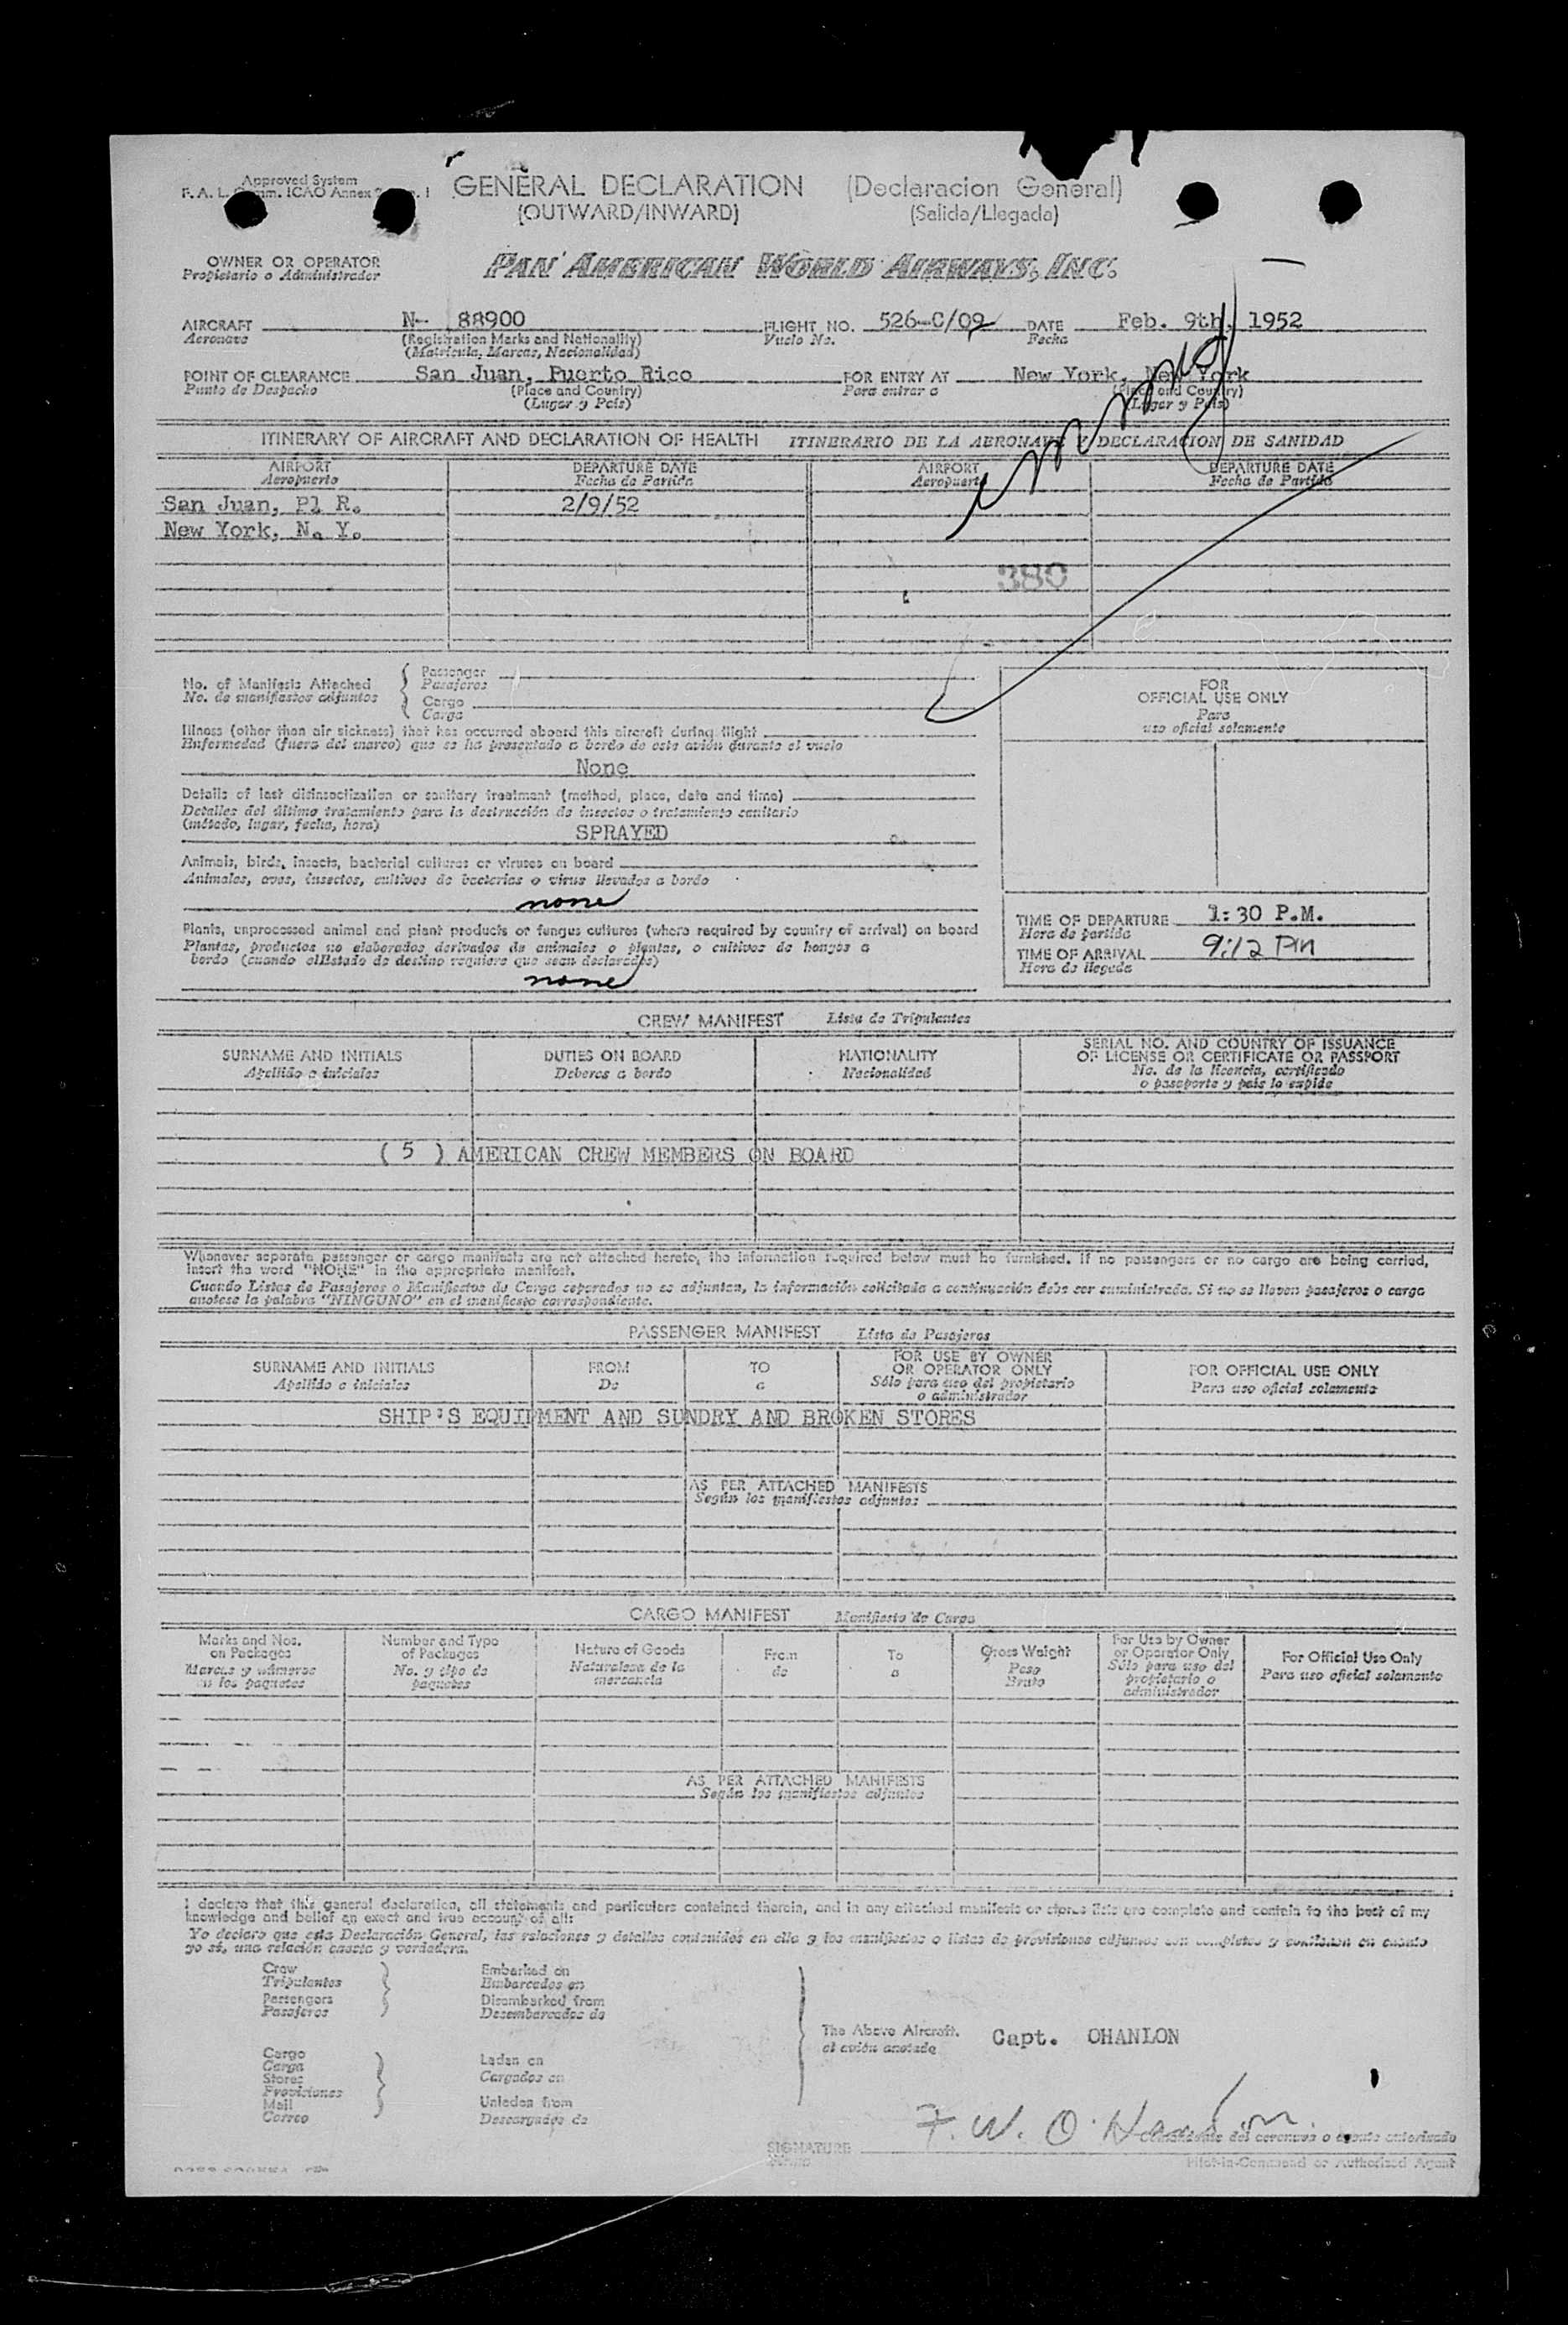 Approved System
GENERAL DECLARATION (Declaracion General)
(OUTWARD/INWARD) (Salida/Llegada)
OWNER OR OPERATOR PAN AMERICAN WORLD AIRWAYS, INC.
Propietario o Administrador
AIRCRAFT N- 88900 FLIGHT NO. 526-C/09 DATE Feb. 9th, 1952
Aeronave (Registration Marks and Nationality) Vuelo No. Fecha
(Matricula, Marcas, Nacionalidad)
POINT OF CLEARANCE San Juan, Puerto Rico FOR ENTRY AT New York, New York
Punto de Despacho (Place and Country) Para entrar a (Place and Country)
(Lugar y País) (Lugar y País)
ITINERARY OF AIRCRAFT AND DECLARATION OF HEALTH ITINERARIO DE LA AERONAVE Y DECLARACION DE SANIDAD
AIRPORT DEPARTURE DATE AIRPORT DEPARTURE DATE
Aeropuerto Fecha de Partida Aeropuerto Fecha de Partida
San Juan, Pl R. 2/9/52
New York, N. Y.
380
No. of Manifests Attached
No. de manifiestos adjuntos
Passenger
Pasajeros
Cargo
Carga
FOR
OFFICIAL USE ONLY
Para
uso oficial solamente
Illness (other than air sickness) that has occurred aboard this aircraft during flight
Enfermedad (fuera del mareo) que se ha presentado a bordo de este avión durante el vuelo
None
Details of last disinsectization or sanitary treatment (method, place, date and time)
Detalles del último tratamiento para la destrucción de insectos o tratamiento sanitario
(método, lugar, fecha, hora)
SPRAYED
Animals, birds, insects, bacterial cultures or viruses on board
Animales, aves, insectos, cultivos de bacterias o virus llevados a bordo
none
Plants, unprocessed animal and plant products or fungus cultures (where required by country of arrival) on board
Plantas, productos no elaborados derivados de animales o plantas, o cultivos de hongos a
bordo (cuando el Estado de destino requiere que sean declarados)
none
TIME OF DEPARTURE 1:30 P.M.
Hora de partida
TIME OF ARRIVAL 9:12 PM
Hora de llegada
CREW MANIFEST Lista de Tripulantes
SURNAME AND INITIALS DUTIES ON BOARD NATIONALITY SERIAL NO. AND COUNTRY OF ISSUANCE
OF LICENSE OR CERTIFICATE OR PASSPORT
Apellido e iniciales Deberes a bordo Nacionalidad No. de la licencia, certificado
o pasaporte y país lo expide
( 5 ) AMERICAN CREW MEMBERS ON BOARD
Whenever separate passenger or cargo manifests are not attached hereto, the information required below must be furnished. If no passengers or no cargo are being carried,
insert the word "NONE" in the appropriate manifest.
Cuando Listas de Pasajeros o Manifiestos de Carga separados no se adjuntan, la información solicitada a continuación debe ser suministrada. Si no se llevan pasajeros o carga
anotese la palabra "NINGUNO" en el manifiesto correspondiente.
PASSENGER MANIFEST Lista de Pasajeros
SURNAME AND INITIALS FROM TO FOR USE BY OWNER
OR OPERATOR ONLY FOR OFFICIAL USE ONLY
Apellido e iniciales De a Sólo para uso del propietario
o administrador Para uso oficial solamente
SHIP'S EQUIPMENT AND SUNDRY AND BROKEN STORES
AS PER ATTACHED MANIFESTS
Según los manifiestos adjuntos
CARGO MANIFEST Manifiesto de Carga
Marks and Nos.
on Packages
Marcas y números
en los paquetes
Number and Type
of Packages
No. y tipo de
paquetes
Nature of Goods
Naturaleza de la
mercancía
From
de
To
a
Gross Weight
Peso
Bruto
For Use by Owner
or Operator Only
Sólo para uso del
propietario o
administrador
For Official Use Only
Para uso oficial solamente
AS PER ATTACHED MANIFESTS
Según los manifiestos adjuntos
I declare that this general declaration, all statements and particulars contained therein, and in any attached manifests or stores lists are complete and contain to the best of my
knowledge and belief an exact and true account of all:
Yo declaro que esta Declaración General, las relaciones y detalles contenidos en ella y los manifiestos o listas de provisiones adjuntos son completos y contienen en cuanto
yo sé, una relación exacta y verdadera.
Crew
Tripulantes
Passengers
Pasajeros
Embarked on
Embarcados en
Disembarked from
Desembarcados de
Cargo
Carga
Stores
Provisiones
Mail
Correo
Laden on
Cargados en
Unladen from
Descargados de
The Above Aircraft.
el avión anotado
Capt. OHANLON
SIGNATURE F. W. O'Hanlon
Comandante del aeronave o agente autorizado
Pilot-in-Command or Authorized Agent